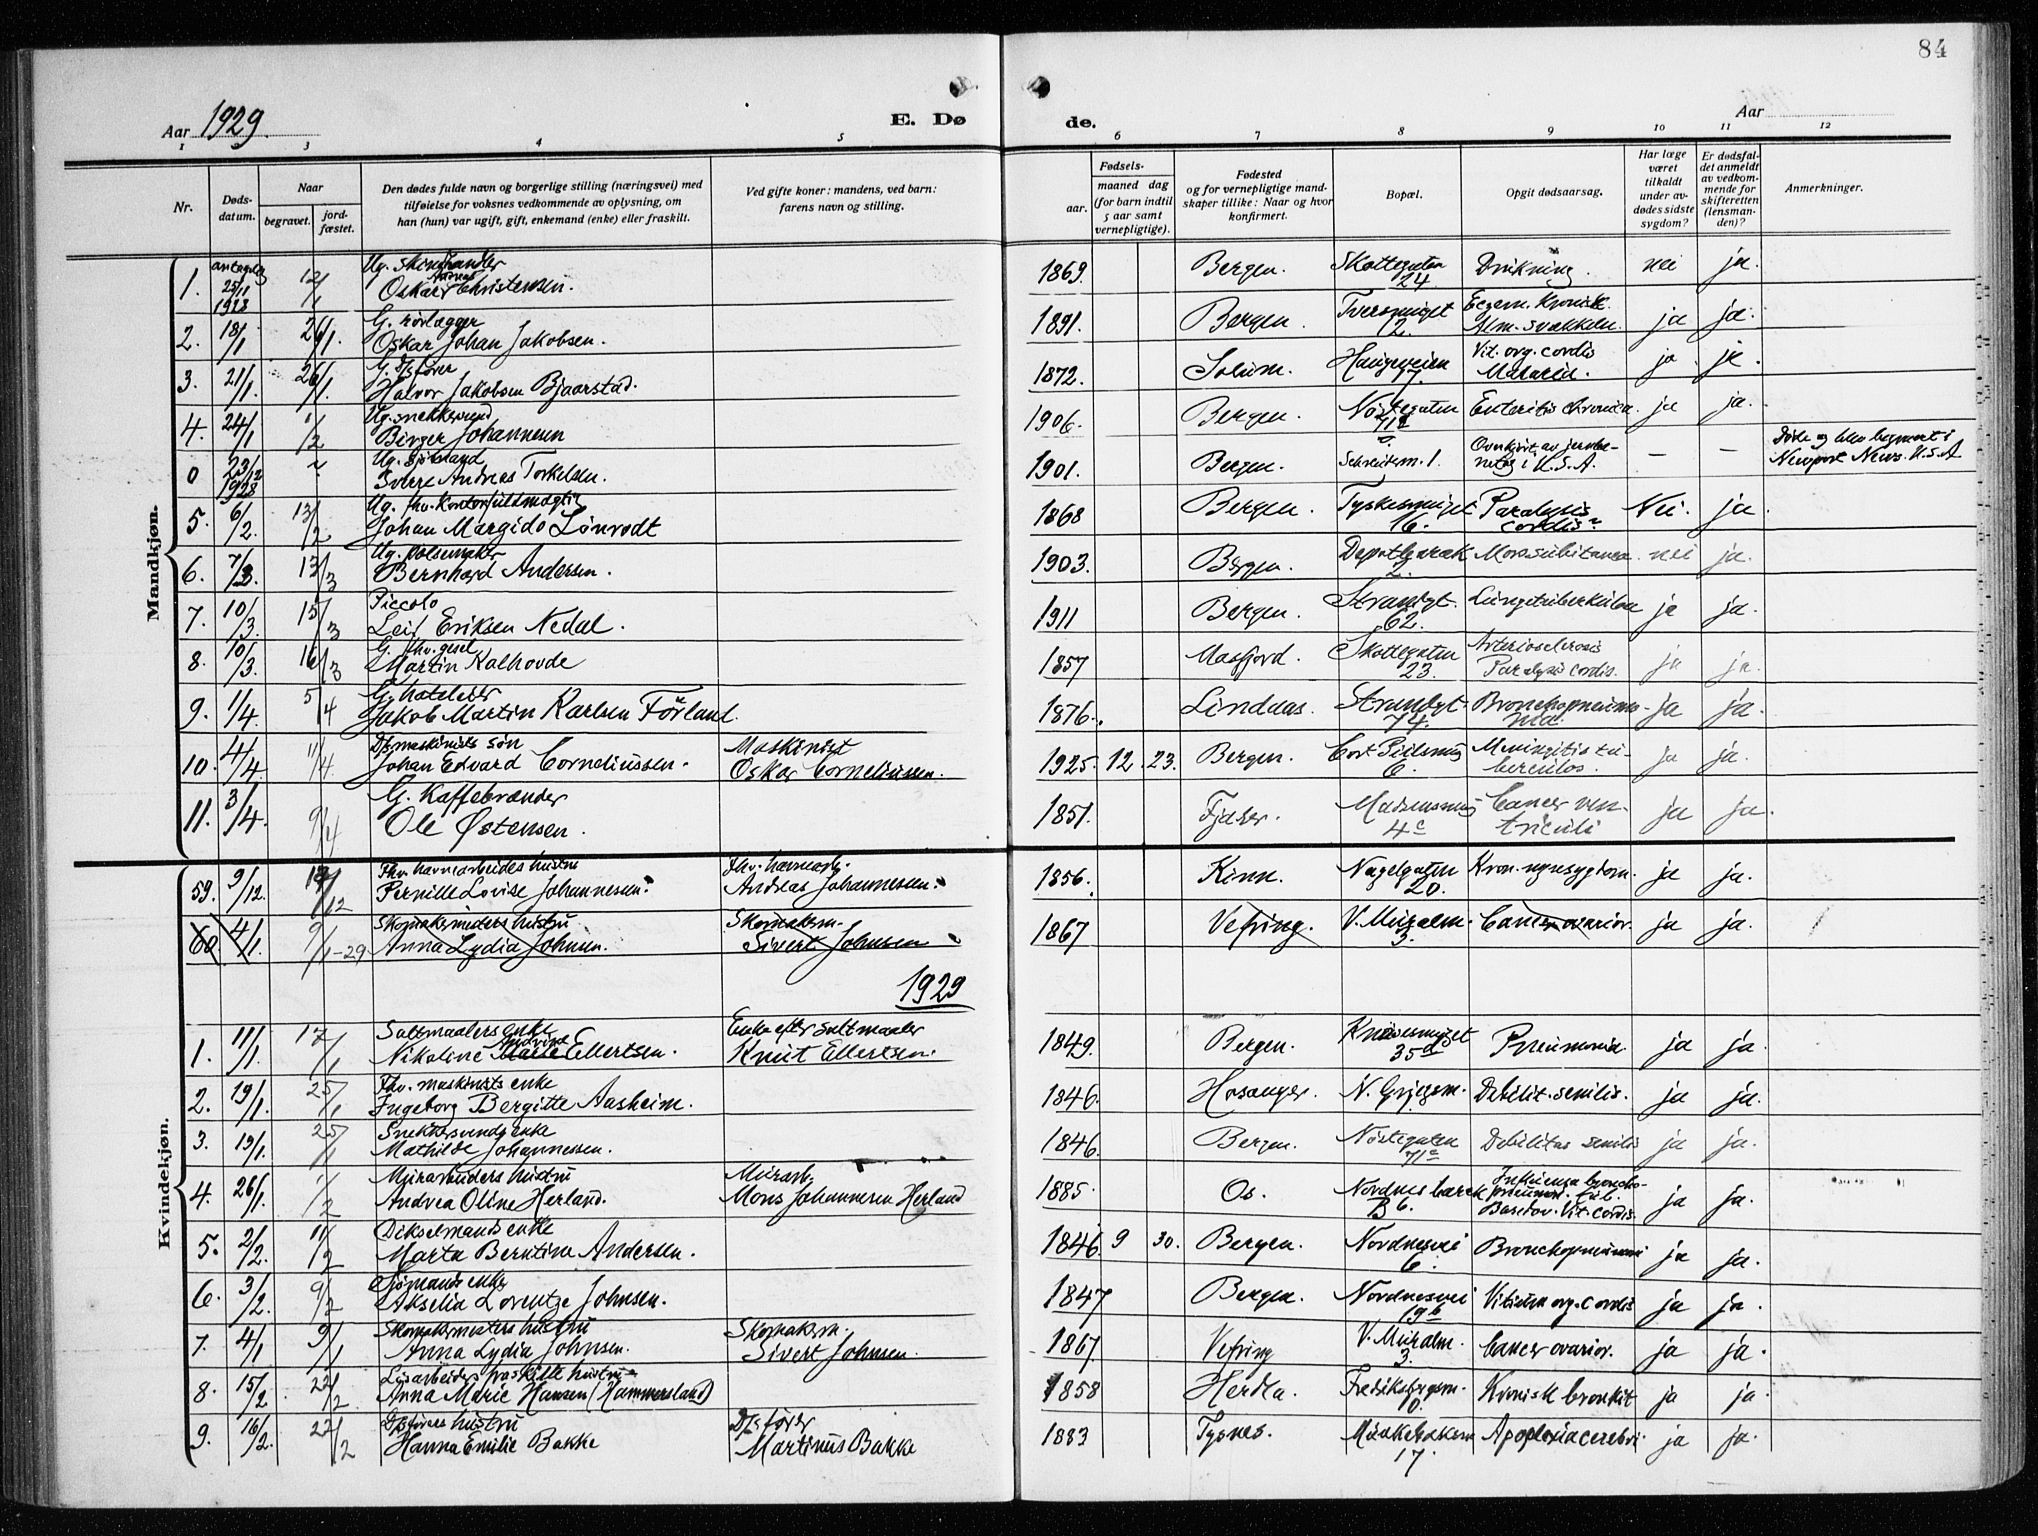 84
Aar 1929.
E. Dø
de.
Aar
1 2 3 4 5 6 7 8 9 10 11 12
Nr.
Døds-
datum.
Naar
begravet.
jord-
fæstet.
Den dødes fulde navn og borgerlige stilling (næringsvei) med
tilføielse for voksnes vedkommende av oplysning, om
han (hun) var ugift, gift, enkemand (enke) eller fraskilt.
Ved gifte koner: mandens, ved barn:
farens navn og stilling.
Fødsels-
aar.
maaned dag
(for barn indtil
5 aar samt
vernepligtige).
Fødested
og for vernepligtige mand-
skaper tillike: Naar og hvor
konfirmert.
Bopæl.
Opgit dødsaarsag.
Har læge
været
tilkaldt
under av-
dødes sidste
sygdom?
Er dødsfal-
det anmeldt
av vedkom-
mende for
skifteretten
(lensman-
den)?
Anmerkninger.
Mandkjøn.
1. antagelig 25/11 1928 12/1 Ug. skindhandler Oskar Andreas Christensen. 1869. Bergen. Skottegaten 24 Drukning. nei ja.
2. 18/1 26/1. G. rørlægger Oskar Johan Jakobsen. 1891. Bergen. Tversmuget 2. Eczem. kronik. Alm. svækkelse ja ja.
3. 21/1. 26/1. G. Ds fører Halvor Jakobsen Bjaarstad. 1872. Solum. Haugeveien 7. Vit. org. cordis ja. ja.
4. 24/1 1/2 Ug. snekkersvend Birger Johannesen 1906. Bergen. Nöstegaten 71 Enteritis chronica. ja ja.
0 23/12 1928 ~ Ug. sjömand Sverre Andreas Torkelsen. 1901. Bergen. Schreuderm. 1. Overkjört av jernba-
netog i U.S.A. — — Döde og blev begravet i
Newport News. U.S.A
5. 6/2. 13/2 Ug. fhv. kontorfuldmægtig Johan Margido Lönrodt 1868 Bergen. Tyskesmuget 16. Paralysis cordis? Nei. ja
6. 7/3. 13/3 Ug. pølsemaker Bernhard Andersen. 1903. Bergen. Depotbarak 2. Mors subitanea nei ja.
7. 10/3. 15/3 Piccolo Leif Eriksen Nedal. 1911 Bergen. Strandgt. 62. Lungetuberkulose ja ja.
8. 10/3. 16/3 G. fhv. gesel Martin Kalhovde 1857 Masfjord. Skottegaten 23. Arteriosclerosis
Paralysis cordis. ja ja.
9. 1/4. 5/4 G. hoteleier Jakob Martin Karlsen Förland. 1876. Lindaas. Strandgt. 74. Bronchopneumo-
nia. ja ja.
10. 4/4. 11/4. Ds maskinists søn Johan Edvard Corneliussen. Maskinist Oskar Corneliussen. 1925. 12. 23. Bergen. Cort Piilsmug 6. Meningitis tu-
berculos. ja ja.
11. 3/4. 9/4 G. Kaffebrænder Ole Østensen. 1851. Fjaler. Madsensmug 4c Cancer ven-
triculi ja ja.
Kvindekjøn.
59. 9/12. 17/12 Fhv. havnearbeiders hustru Pernille Lovise Johannesen. Fhv. havnearb. Andreas Johannesen. 1856. Kinn. Nagelgaten 20. Kron. nyresygdom. ja ja.
60 4/1. 9/1-29 Skomakermesters hustru Anna Lydia Johnsen. Skomakerm. Sivert Johnsen 1867 Vefring. V. Muralm. 3. Cancer ovarior. ja ja.
1929
1. 11/1. 17/1 Saltmaalers enke Nikoline Andrine Ellertsen. Enke efter saltmaaler Knut Ellertsen. 1849. Bergen. Knösesmuget 35a Pneumonia. ja ja.
2. 19/1. 25/1 Fhv. maskinists enke Ingeborg Bergitte Aasheim. 1846. Hosanger. N. Grjegsm. Debilit. senilis. ja ja.
3. 19/1. 25/1 Snekkersvends enke Mathilde Johannessen. 1846. Bergen. Nöstegaten 71c Debilitas senilis ja ja.
4. 26/1. 1/2 Murarbeiders hustru Andrea Oline Herland. Murarb. Mons Johannesen Herland 1885. Os. Nordnes barak B 6. Influensa broncho-
pneumon. ja ja.
5. 2/2. 11/2 Dikselmands enke Marta Berntine Andersen. 1846 9 30. Bergen. Nordnesvei 6. Bronchopneumoni ja ja.
6. 3/2. 9/2 Sjömands enke Akselia Lorentze Johnsen. 1847 Bergen. Nordnesvei 19b Vitium org. cordis ja ja.
7. 4/1 9/1 Skomakermesters hustru Anna Lydia Johnsen. Skomakerm. Sivert Johnsen. 1867. Vefring V. Muralm. 3. Cancer ovarior. ja ja.
8. 15/2 22/2 Lisarbeiders fraskilte hustru Anna Marie Hansen (Hammersland) 1858 Herdla. Fredriksbergsm. Kronisk bronkit ja ja.
9. 16/2. 22/2 Ds förers hustru Hanna Emilie Bakke D/s förer Martinus Bakke 1883 Tysnes. 17. Apoplexia cerebri ja ja.